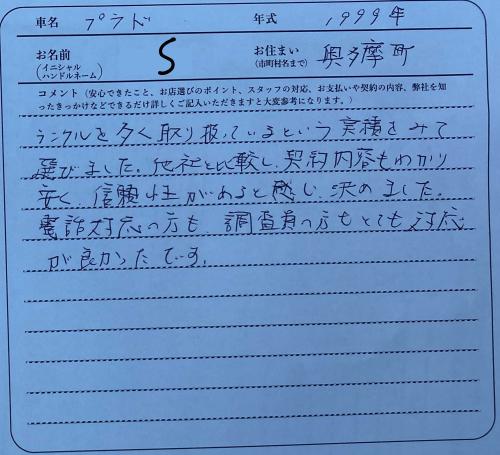 車名 プラド 年式 1999年
お名前 (イニシャル ハンドルネーム) S お住まい (市町村名まで) 奥多摩町
コメント(安心できたこと、お店選びのポイント、スタッフの対応、お支払いや契約の内容、弊社を知
ったきっかけなどできるだけ詳しくご記入いただきますと大変参考になります。)
ランクルを多く取り扱っているという実積をみて
選びました。他社と比較し、契約内容もわかり
安く、信頼性があると感じ、決めました。
電話対応の方も、調査員の方もとても対応
が良かったです。